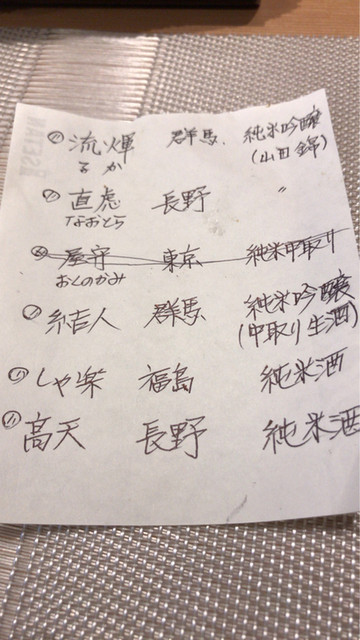 流輝 群馬 純米吟醸
るか (山田錦)
直虎 長野 〃
なおとら
屋守 東京 純米中取り
おくのかみ
結人 群馬 純米吟醸
(中取り生酒)
しゃ楽 福島 純米酒
高天 長野 純米酒